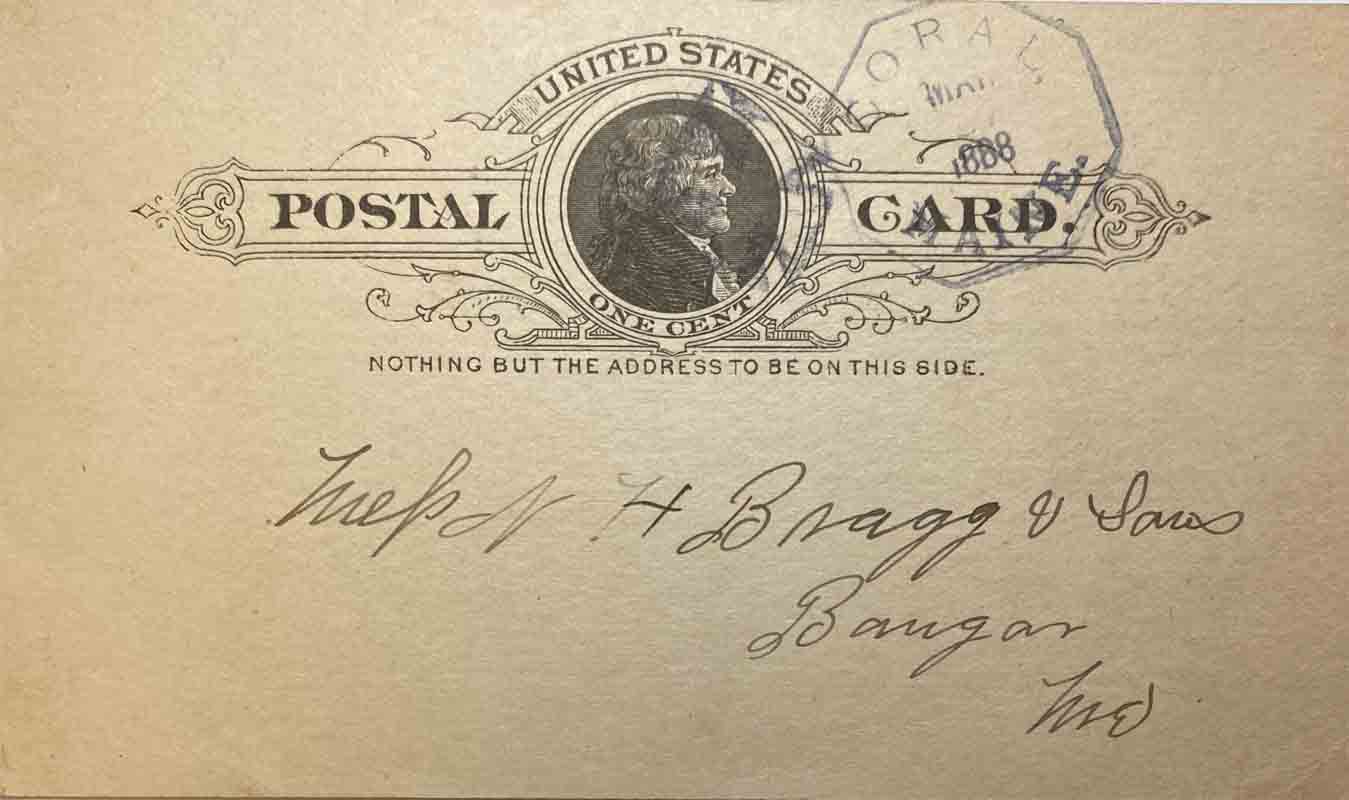 UNITED STATES
POSTAL CARD.
ONE CENT
NOTHING BUT THE ADDRESS TO BE ON THIS SIDE.
MAR
1888
MAINE.
Mess N H Bragg & Sons
Bangor
Me